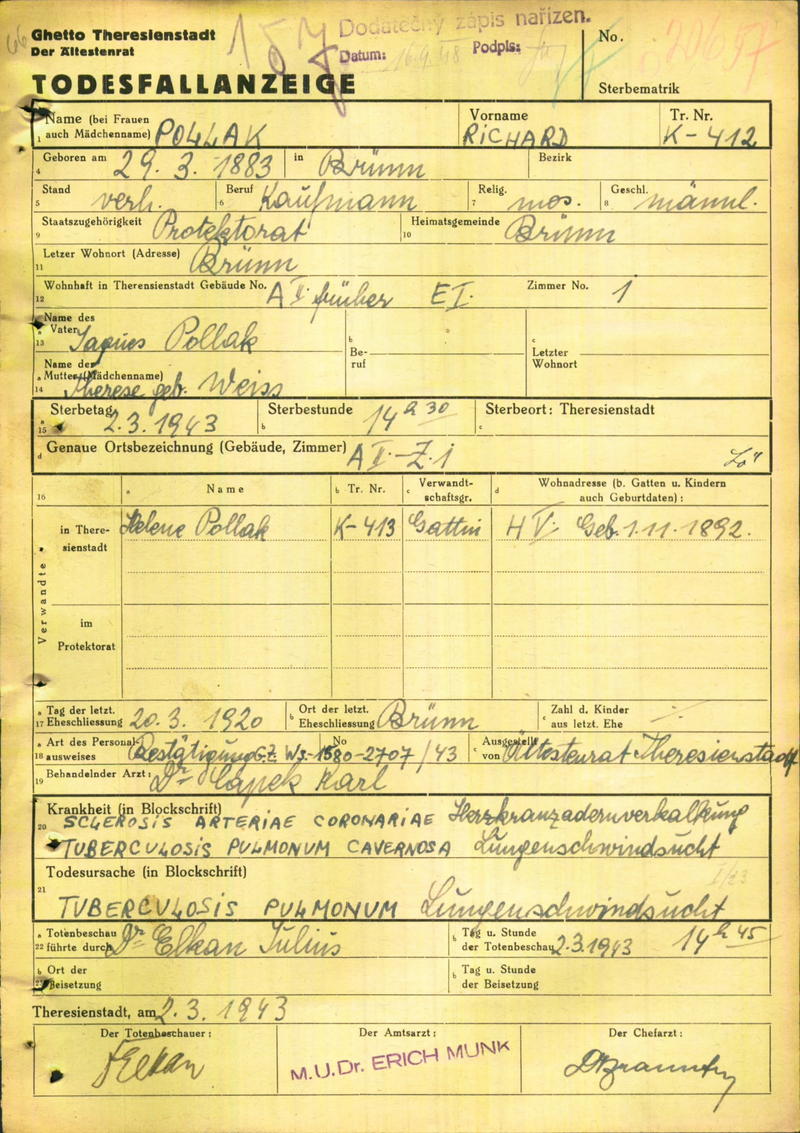 Ghetto Theresienstadt
Der Ältestenrat
Dodatečný zápis nařízen.
Datum: 16.9.48 Podpis:
No.
TODESFALLANZEIGE
Sterbematrik
1 Name (bei Frauen auch Mädchenname) POLLAK Vorname RICHARD Tr. Nr. K-412
4 Geboren am 29. 3. 1883 in Brünn Bezirk
5 Stand verh. 6 Beruf Kaufmann 7 Relig. mos. 8 Geschl. männl.
9 Staatszugehörigkeit Protektorat 10 Heimatsgemeinde Brünn
11 Letzer Wohnort (Adresse) Brünn
12 Wohnhaft in Theresienstadt Gebäude No. A II. früher E I. Zimmer No. 1
13 a Name des Vaters Jaques Pollak b Beruf c Letzter Wohnort
14 a Name der Mutter (Mädchenname) Therese geb. Weiss
15 a Sterbetag 2.3.1943 b Sterbestunde 14 h 30 c Sterbeort: Theresienstadt
d Genaue Ortsbezeichnung (Gebäude, Zimmer) A II-Z.1
16 a Name b Tr. Nr. c Verwandtschaftsgr. d Wohnadresse (b. Gatten u. Kindern auch Geburtdaten):
Verwandte
in Theresienstadt Helene Pollak K-413 Gattin H V. Geb. 1.11.1892.
im Protektorat
17 a Tag der letzt. Eheschliessung 20.3. 1920 b Ort der letzt. Eheschliessung Brünn c Zahl d. Kinder aus letzt. Ehe
18 a Art des Personalausweises Bestätigung G.Z. b No W.J.-1580-2707/43 c Ausgestellt von Ältestenrat Theresienstadt
19 Behandelnder Arzt: Dr Capek Karl
20 Krankheit (in Blockschrift)
SCLEROSIS ARTERIAE CORONARIAE Herzkranzadernverkalkung
TUBERCULOSIS PULMONUM CAVERNOSA Lungenschwindsucht
21 Todesursache (in Blockschrift)
TUBERCULOSIS PULMONUM Lungenschwindsucht
22 a Totenbeschau führte durch Dr Elkan Julius b Tag u. Stunde der Totenbeschau 2.3.1943 14 h 45
b Ort der Beisetzung b Tag u. Stunde der Beisetzung
Theresienstadt, am 2. 3. 1943
Der Totenbeschauer: Der Amtsarzt: Der Chefarzt:
JElkan M.U.Dr. ERICH MUNK